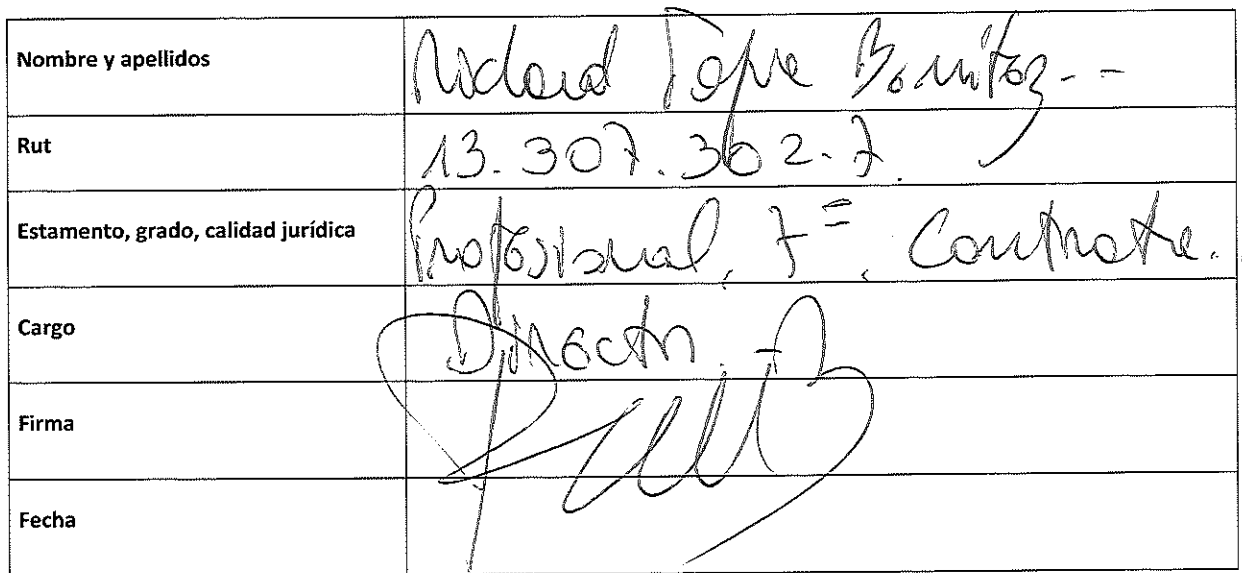 Nombre y apellidos Richard Tapia Benitez.--
Rut 13.307.302-7.
Estamento, grado, calidad jurídica Profesional, 7º, Contrata.
Cargo Director.-
Firma
Fecha